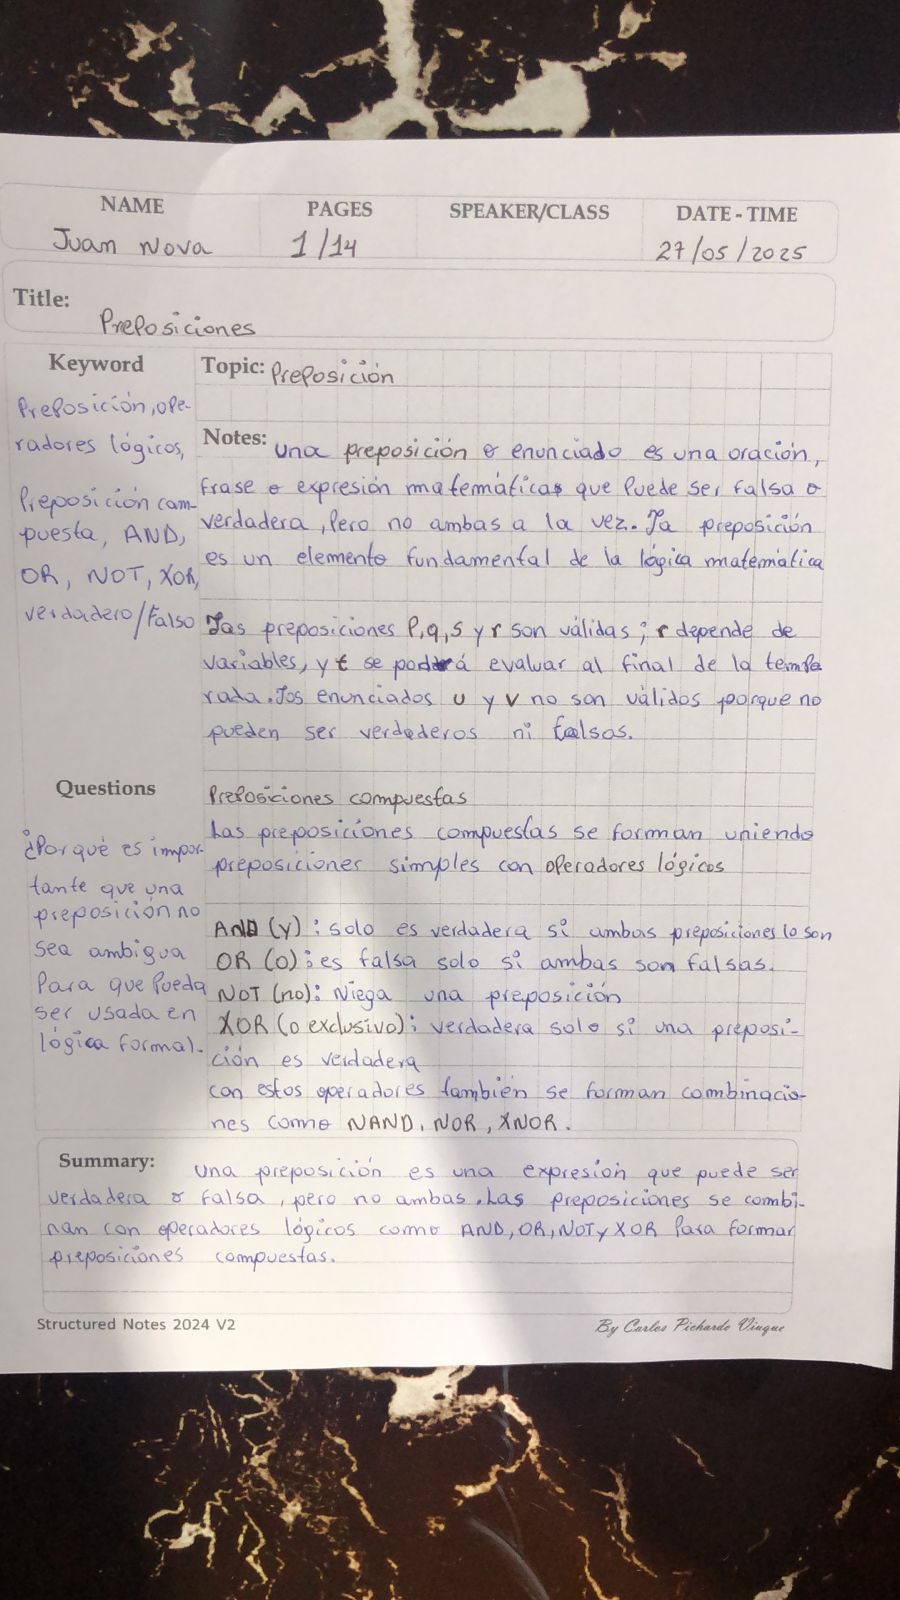 NAME PAGES SPEAKER/CLASS DATE - TIME
Juan Nova 1/14 27/05/2025
Title:
Preposiciones
Keyword
Preposición, ope-
radores lógicos,
Preposición com-
puesta, AND,
OR, NOT, XOR,
verdadero/Falso
Topic: Preposición
Notes: una preposición o enunciado es una oración,
frase o expresión matemáticas que puede ser falsa o
verdadera, pero no ambas a la vez. La preposición
es un elemento fundamental de la lógica matemática
Las preposiciones P,q,s y r son válidas; r depende de
variables, y t se podrá evaluar al final de la tempo
rada. Los enunciados u y v no son válidos porque no
pueden ser verdaderos ni falsos.
Questions
¿Por qué es impor-
tante que una
preposición no
sea ambigua
Para que pueda
ser usada en
lógica formal.
Preposiciones compuestas
Las preposiciones compuestas se forman uniendo
preposiciones simples con operadores lógicos
AND (y): solo es verdadera si ambas preposiciones lo son
OR (o): es falsa solo si ambas son falsas.
NOT (no): Niega una preposición
XOR (o exclusivo): verdadera solo si una preposi-
ción es verdadera
con estos operadores también se forman combinacio-
nes como NAND, NOR, XNOR.
Summary: una preposición es una expresión que puede ser
verdadera o falsa, pero no ambas. Las preposiciones se combi-
nan con operadores lógicos como AND, OR, NOT y XOR Para formar
preposiciones compuestas.
Structured Notes 2024 V2 By Carlos Pichardo Viuque